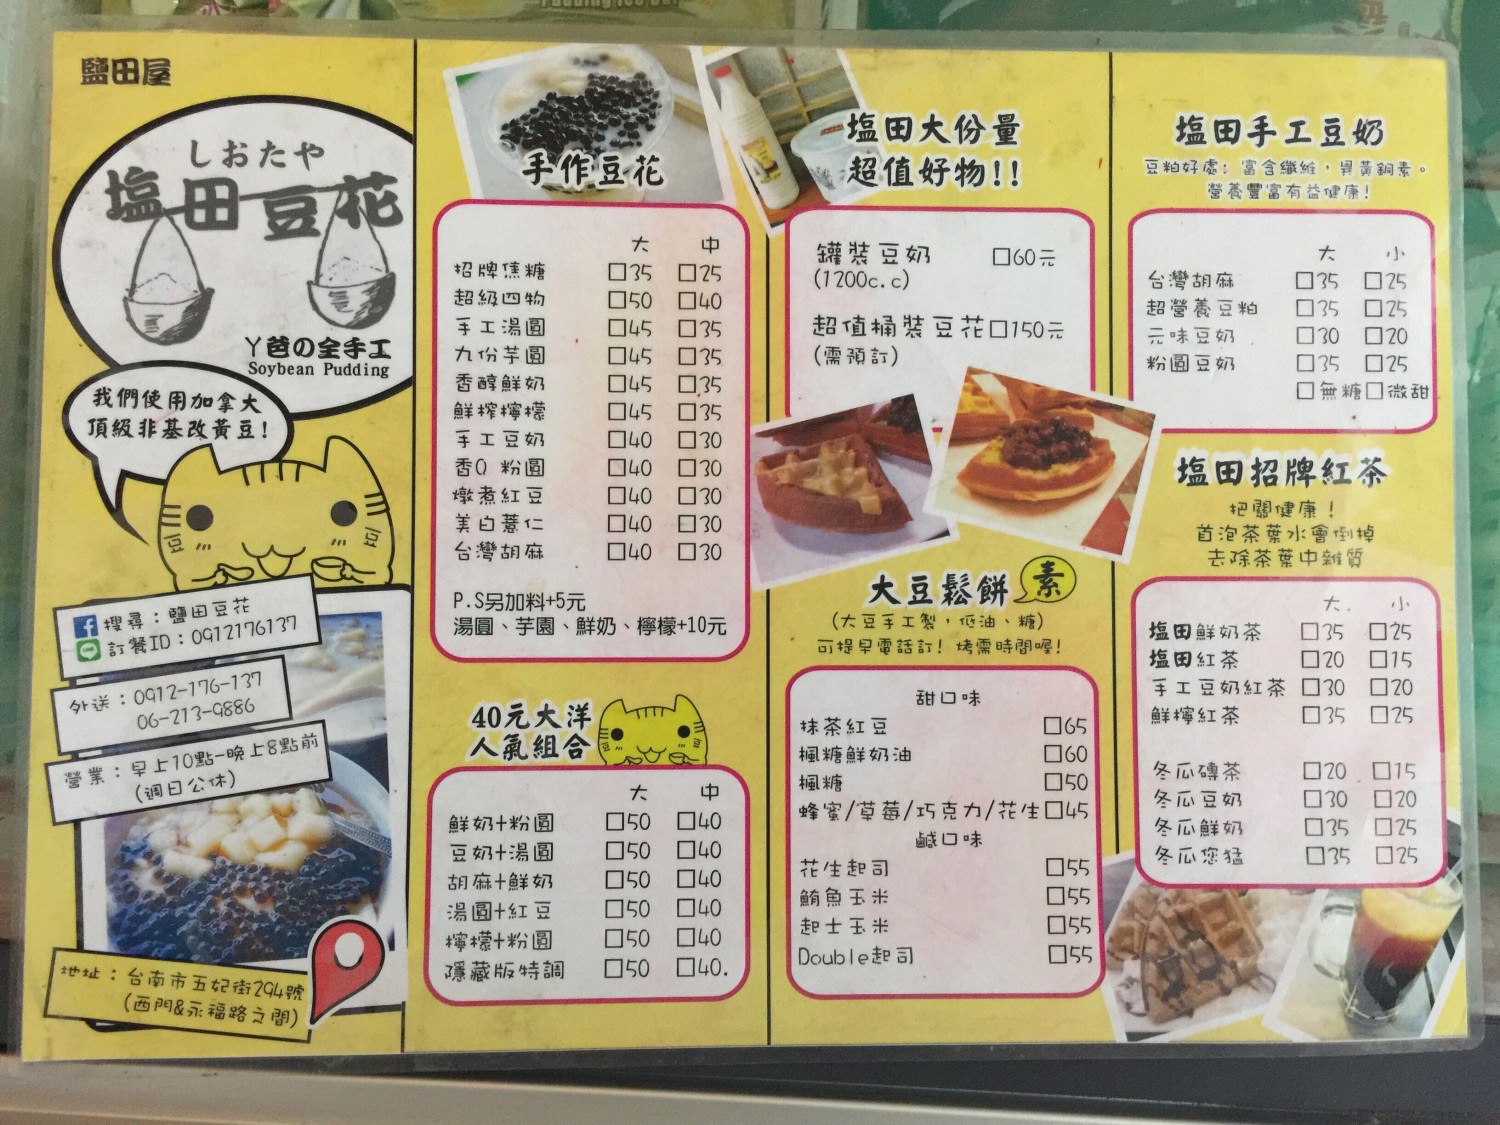 鹽田屋
しおたや
塩田豆花
ㄚ爸の全手工
Soybean Pudding
我們使用加拿大
頂級非基改黃豆!
豆
豆
搜尋：鹽田豆花
訂餐ID：0912176137
外送：0912-176-137
06-213-9886
營業：早上10點-晚上8點前
(週日公休)
地址：台南市五妃街294號
(西門&永福路之間)
手作豆花
大 中
招牌焦糖 □35 □25
超級四物 □50 □40
手工湯圓 □45 □35
九份芋圓 □45 □35
香醇鮮奶 □45 □35
鮮榨檸檬 □45 □35
手工豆奶 □40 □30
香Q粉圓 □40 □30
燉煮紅豆 □40 □30
美白薏仁 □40 □30
台灣胡麻 □40 □30
P.S另加料+5元
湯圓、芋圓、鮮奶、檸檬+10元
40元大洋
人氣組合
大 中
鮮奶+粉圓 □50 □40
豆奶+湯圓 □50 □40
胡麻+鮮奶 □50 □40
湯圓+紅豆 □50 □40
檸檬+粉圓 □50 □40
隱藏版特調 □50 □40.
塩田大份量
超值好物!!
罐裝豆奶 □60元
(1200c.c)
超值桶裝豆花□150元
(需預訂)
大豆鬆餅 素
(大豆手工製，低油、糖)
可提早電話訂! 烤需時間喔!
甜口味
抹茶紅豆 □65
楓糖鮮奶油 □60
楓糖 □50
蜂蜜/草莓/巧克力/花生□45
鹹口味
花生起司 □55
鮪魚玉米 □55
起士玉米 □55
Double起司 □55
塩田手工豆奶
豆粕好處: 富含纖維，異黃銅素。
營養豐富有益健康!
大 小
台灣胡麻 □35 □25
超營養豆粕 □35 □25
元味豆奶 □30 □20
粉圓豆奶 □35 □25
□無糖□微甜
塩田招牌紅茶
把關健康！
首泡茶葉水會倒掉
去除茶葉中雜質
大. 小
塩田鮮奶茶 □35 □25
塩田紅茶 □20 □15
手工豆奶紅茶 □30 □20
鮮檸紅茶 □35 □25
冬瓜磚茶 □20 □15
冬瓜豆奶 □30 □20
冬瓜鮮奶 □35 □25
冬瓜您猛 □35 □25